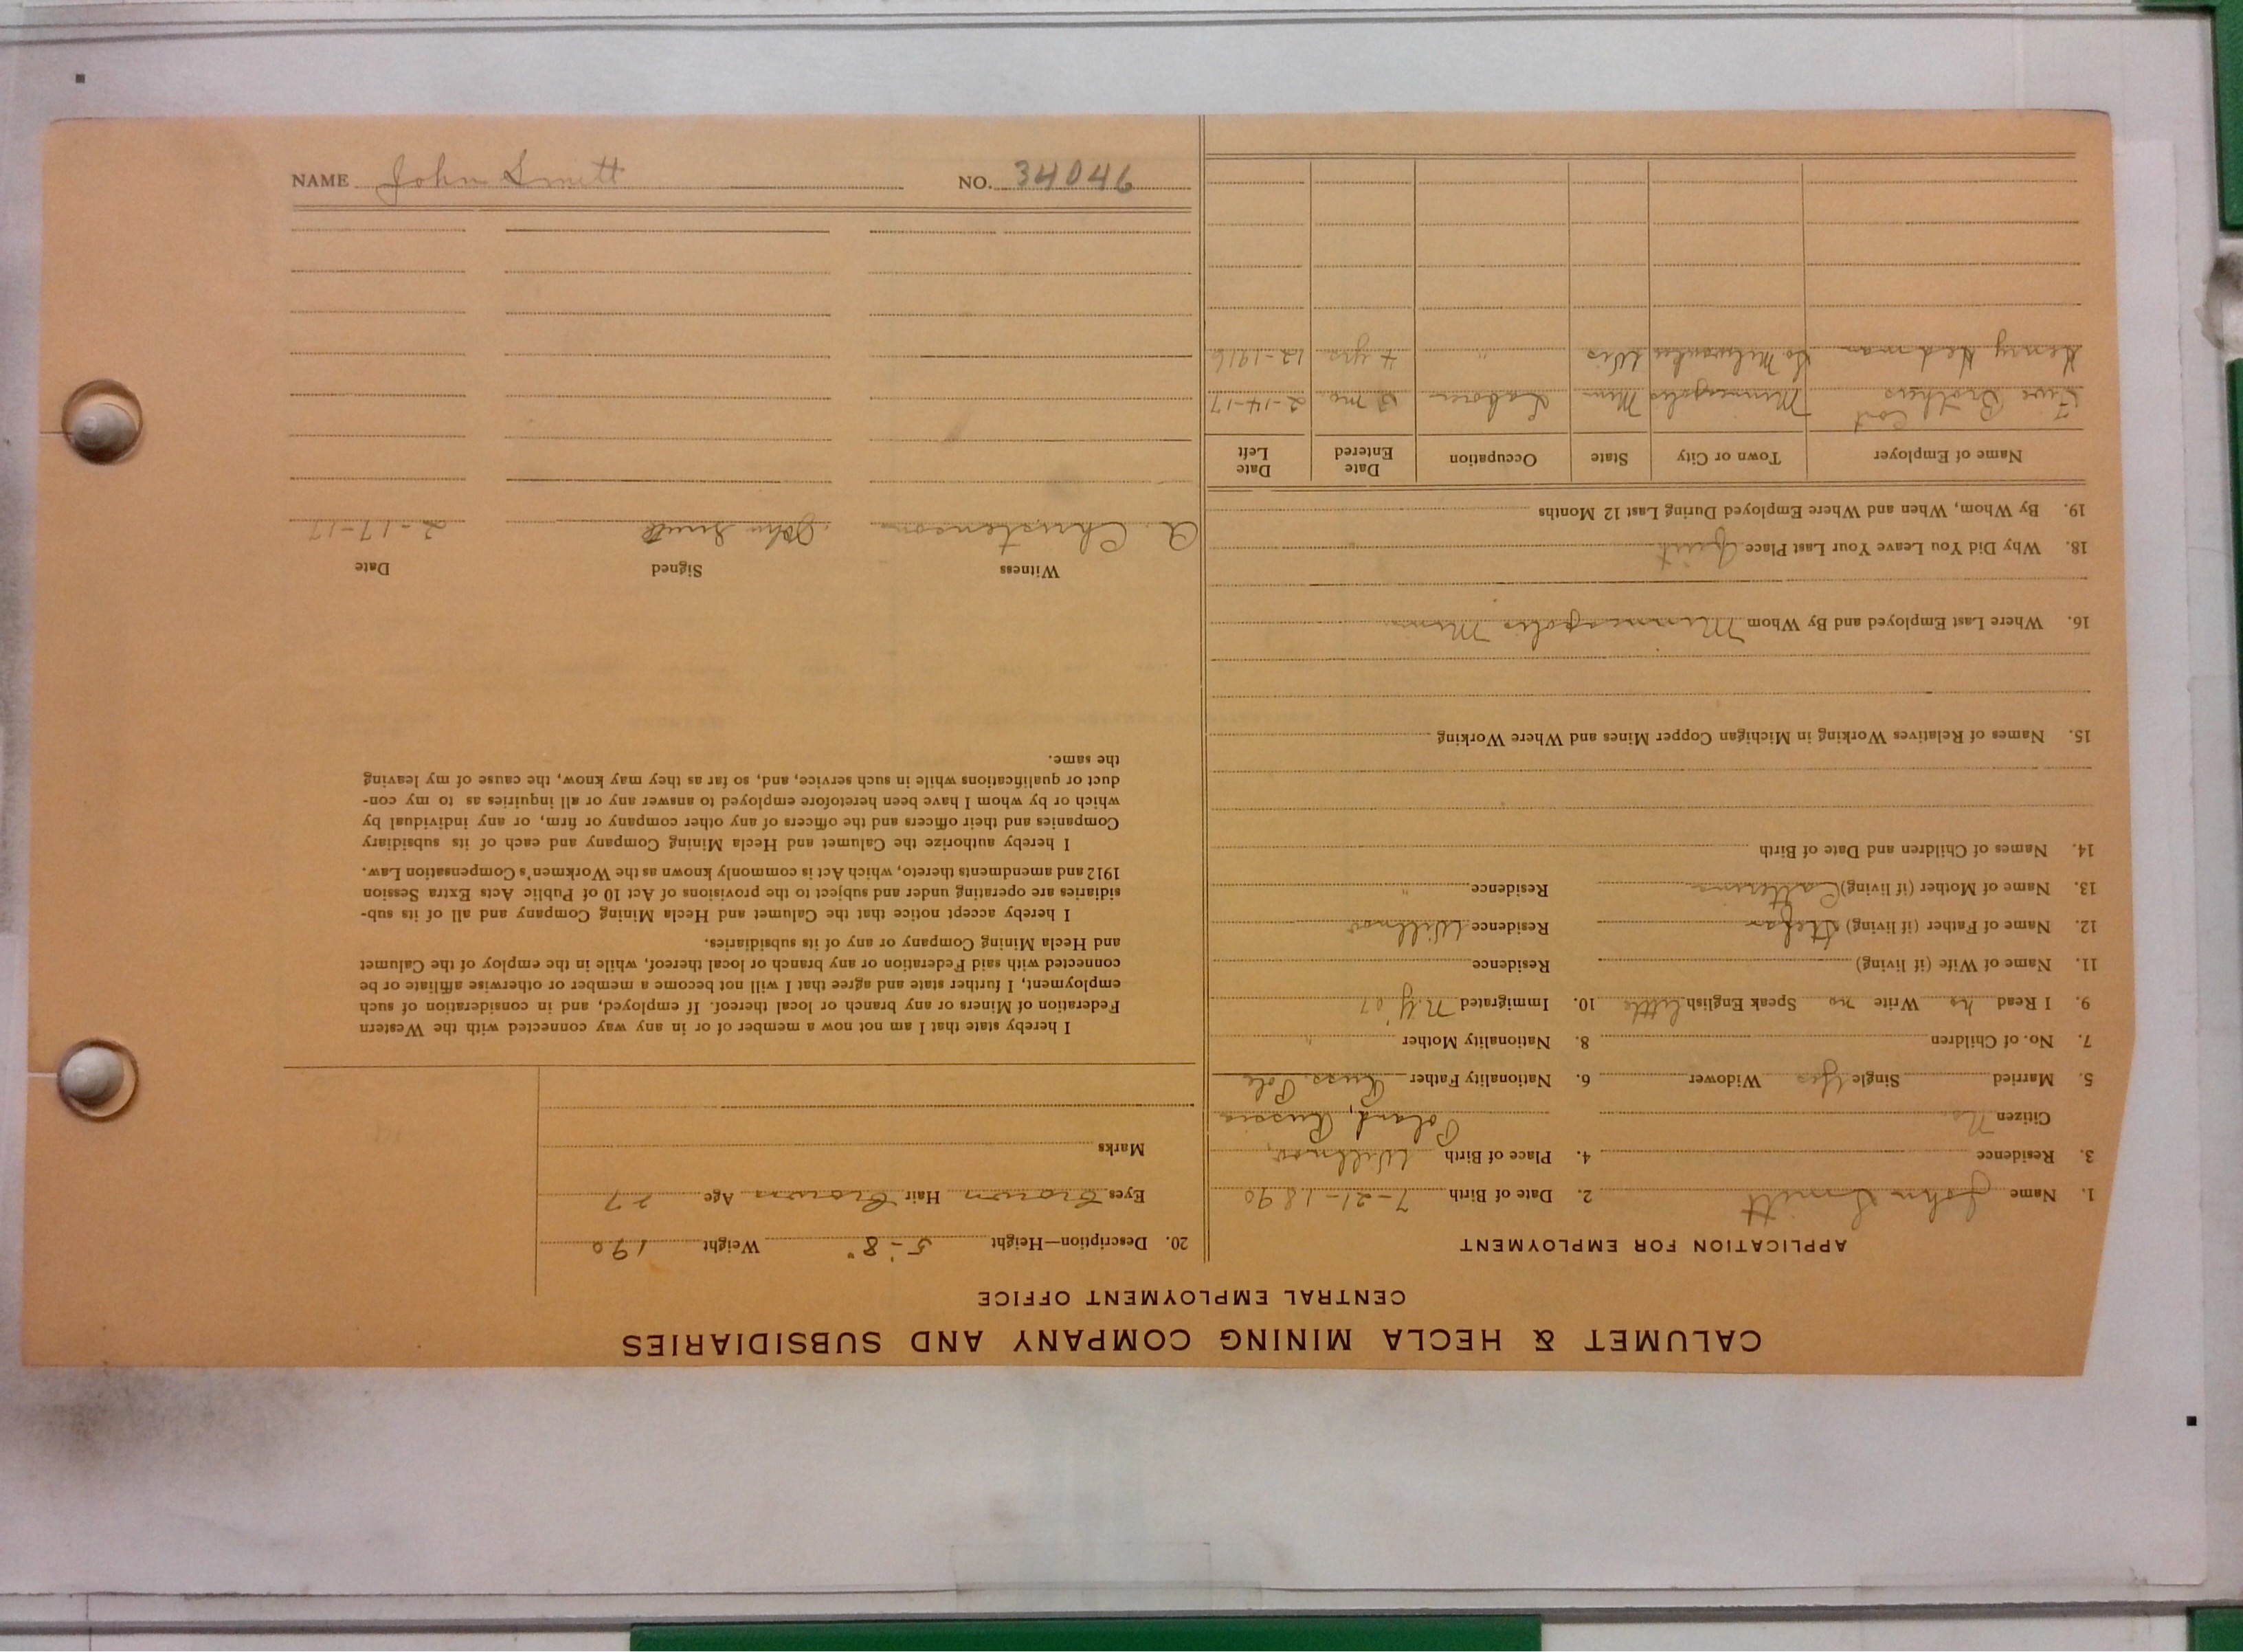 NAME John Smitt NO. 34046
CALUMET & HECLA MINING COMPANY AND SUBSIDIARIES
CENTRAL EMPLOYMENT OFFICE
APPLICATION FOR EMPLOYMENT
1. Name John Smitt 2. Date of Birth 7-21-1890
3. Residence 4. Place of Birth Willnov,
Citizen No Poland, Russia
5. Married Single Yes Widower 6. Nationality Father Russ. Pole
7. No. of Children 8. Nationality Mother "
9. I Read no Write no Speak English little 10. Immigrated N.Y. 07
11. Name of Wife (if living) Residence
12. Name of Father (if living) Stefan Residence Willnov
13. Name of Mother (if living) Residence "
14. Names of Children and Date of Birth
15. Names of Relatives Working in Michigan Copper Mines and Where Working
16. Where Last Employed and By Whom Minneapolis Minn
18. Why Did You Leave Your Last Place Quit
19. By Whom, When and Where Employed During Last 12 Months
Name of Employer Town or City State Occupation Date Entered Date Left
Brothers Cont Minneapolis Minn Laborer 2 mo. 2-14-17
Henry Hedman So Milwaukee Wis " 4 yrs 12-1916
20. Description—Height 5'-8" Weight 190
Eyes Brown Hair Brown Age 27
Marks
I hereby state that I am not now a member of or in any way connected with the Western
Federation of Miners or any branch or local thereof. If employed, and in consideration of such
employment, I further state and agree that I will not become a member or otherwise affiliate or be
connected with said Federation or any branch or local thereof, while in the employ of the Calumet
and Hecla Mining Company or any of its subsidiaries.
I hereby accept notice that the Calumet and Hecla Mining Company and all of its sub-
sidiaries are operating under and subject to the provisions of Act 10 of Public Acts Extra Session
1912 and amendments thereto, which Act is commonly known as the Workmen's Compensation Law.
I hereby authorize the Calumet and Hecla Mining Company and each of its subsidiary
Companies and their officers and the officers of any other company or firm, or any individual by
which or by whom I have been heretofore employed to answer any or all inquiries as to my con-
duct or qualifications while in such service, and, so far as they may know, the cause of my leaving
the same.
Witness Signed Date
A. Christenson John Smitt 2-17-17